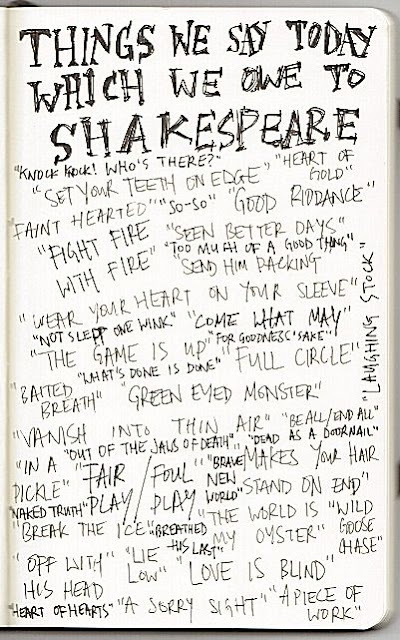 THINGS WE SAY TODAY
WHICH WE OWE TO
SHAKESPEARE
"KNOCK KNOCK! WHO'S THERE?" "HEART OF GOLD"
"SET YOUR TEETH ON EDGE"
FAINT HEARTED" "SO-SO" "GOOD RIDDANCE"
"FIGHT FIRE WITH FIRE" "SEEN BETTER DAYS"
"TOO MUCH OF A GOOD THING"
"SEND HIM PACKING"
"WEAR YOUR HEART ON YOUR SLEEVE"
"LAUGHING STOCK"
"NOT SLEPT ONE WINK" "COME WHAT MAY"
"THE GAME IS UP" "FOR GOODNESS' SAKE"
"WHAT'S DONE IS DONE" "FULL CIRCLE"
"BAITED BREATH" "GREEN EYED MONSTER"
"VANISH INTO THIN AIR" "BE ALL/END ALL"
"OUT OF THE JAWS OF DEATH" "DEAD AS A DOORNAIL"
"IN A PICKLE" "FAIR PLAY // FOUL PLAY "BRAVE NEW WORLD" "MAKES YOUR HAIR STAND ON END"
"NAKED TRUTH"
"BREAK THE ICE" "BREATHED HIS LAST" "THE WORLD IS MY OYSTER" "WILD GOOSE CHASE"
"OFF WITH HIS HEAD "LIE LOW" "LOVE IS BLIND"
"HEART OF HEARTS" "A SORRY SIGHT" "A PIECE OF WORK"